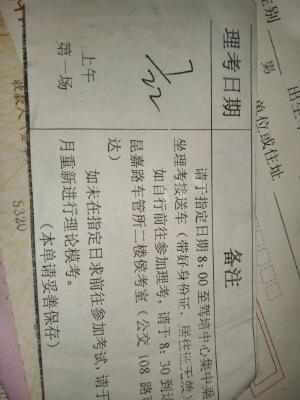 性别
男
单位或住址
理考日期
备注
7/22
上午
第一场
请于指定日期 8:00 至驾培中心集中乘
坐理考接送车（带好身份证、居住证无效）
如自行前往参加理考，请于 8:30 到达
昆嘉路车管所二楼侯考室（公交 108 路
达）
如未在指定日求前往参加考试，请于
月重新进行理论模考。
（本单请妥善保存）
收款人
5320